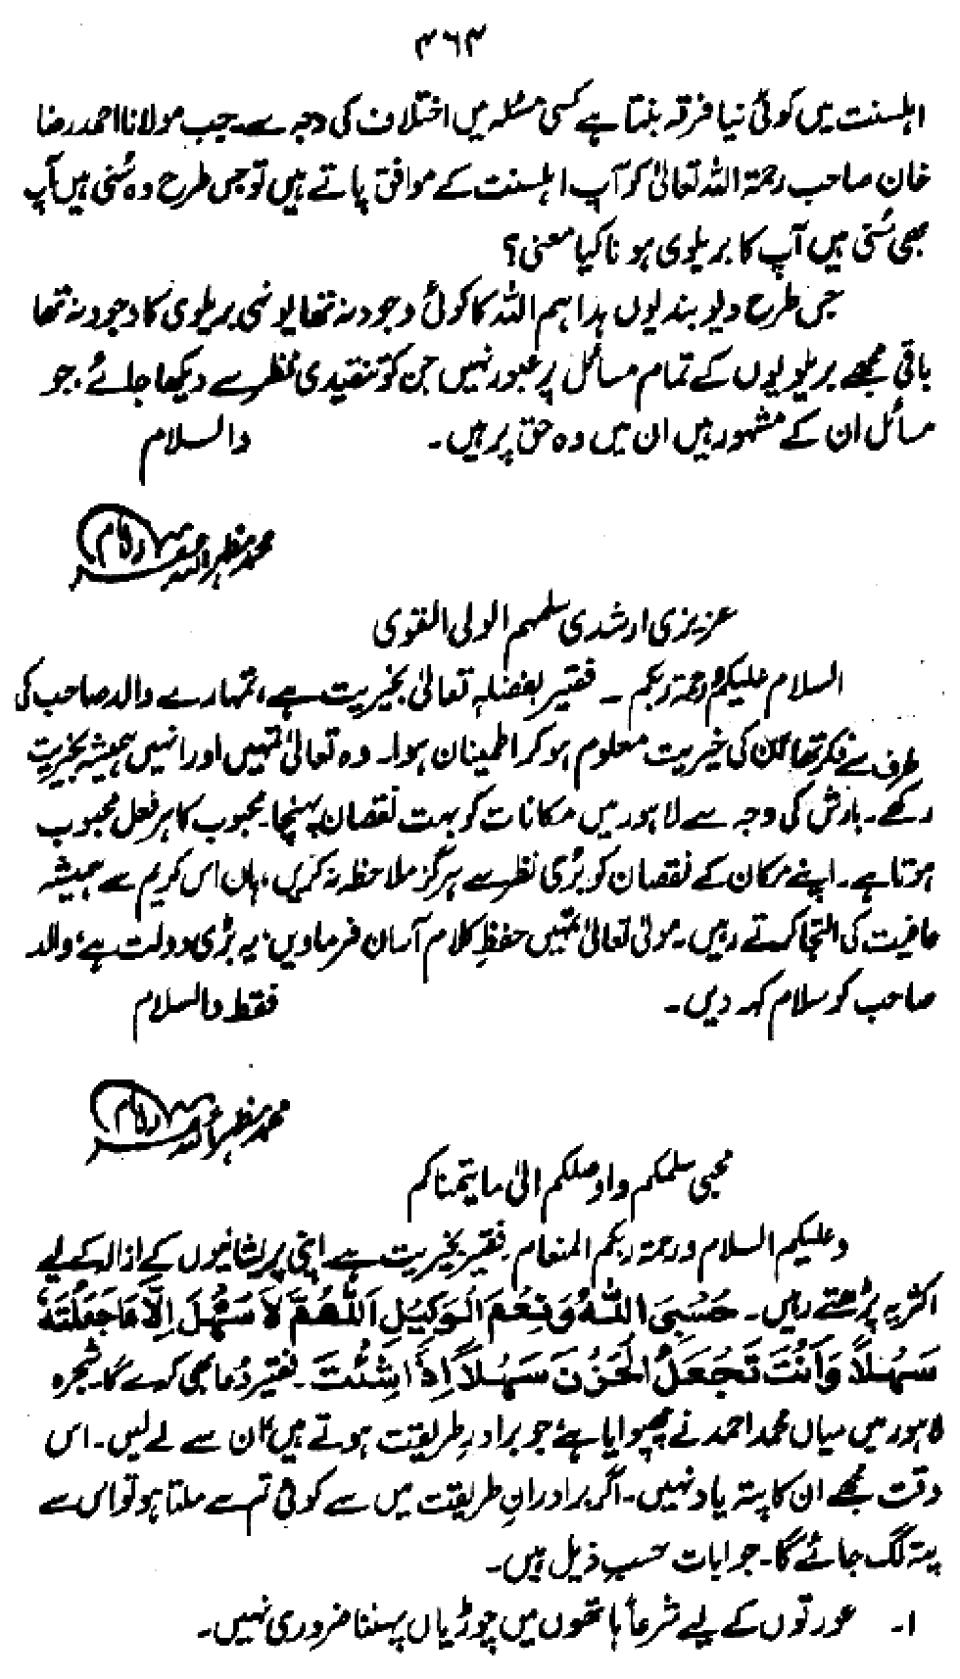 ۳۶۳
اہلسنت میں کوئی نیا فرقہ بنتا ہے کسی مسئلہ میں اختلاف کی وجہ سے۔ جب مولانا احمد رضا
خان صاحب رحمۃ اللہ تعالیٰ کو آپ اہلسنت کے موافق پاتے ہیں تو جس طرح وہ سُنی ہیں آپ
بھی سُنی ہیں آپ کا بریلوی ہونا کیا معنی؟
جس طرح دیوبندیوں ہداہم اللہ کا کوئی وجود نہ تھا یونہی بریلوی کا وجود نہ تھا
باقی مجھے بریلویوں کے تمام مسائل پر عبور نہیں جن کو تنقیدی نظر سے دیکھا جائے، جو
مسائل ان کے مشہور ہیں ان میں وہ حق پر ہیں۔ والسلام
محمد مظہر اللہ
عزیزی ارشدی سلمہم الولی القوی
السلام علیکم ورحمۃ ربکم ۔ فقیر بفضلہ تعالیٰ بخیریت ہے، تمہارے والد صاحب کی
طرف سے فکر تھا ان کی خیریت معلوم ہو کر اطمینان ہوا۔ وہ تعالیٰ تمہیں اور انہیں ہمیشہ بخیریت
رکھے۔ بارش کی وجہ سے لاہور میں مکانات کو بہت نقصان پہنچا۔ محبوب کا ہر فعل محبوب
ہوتا ہے۔ اپنے مکان کے نقصان کو بُری نظر سے ہرگز ملاحظہ نہ کریں، ہاں اس کریم سے ہمیشہ
عافیت کی التجا کرتے رہیں۔ مولیٰ تعالیٰ تمہیں حفظِ کلام آسان فرماویں۔ یہ بڑی دولت ہے، والد
صاحب کو سلام کہہ دیں۔ فقط والسلام
محمد مظہر اللہ
محبی سلمکم واوصلکم الیٰ ما یتمناکم
وعلیکم السلام ورحمۃ ربکم المنعام۔ فقیر بخیریت ہے۔ اپنی پریشانیوں کے ازالہ کے لیے
اکثر یہ پڑھتے رہیں۔ حَسْبِیَ اللّٰہُ وَنِعْمَ الْوَکِیْلِ اَللّٰھُمَّ لَا سَھْلَ اِلَّا مَا جَعَلْتَہٗ
سَھْلاً وَاَنْتَ تَجْعَلُ الْحَزْنَ سَھْلاً اِذَا شِئْتَ۔ فقیر دُعا بھی کرے گا۔ شجرہ
لاہور میں میاں محمد احمد نے چھپوایا ہے جو برادرِ طریقت ہوتے ہیں ان سے لے لیں۔ اس
وقت مجھے ان کا پتہ یاد نہیں۔ اگر برادرانِ طریقت میں سے کوئی تم سے ملتا ہو تو اس سے
پتہ لگ جائے گا۔ جوابات حسبِ ذیل ہیں۔
۱۔ عورتوں کے لیے شرعاً ہاتھوں میں چوڑیاں پہننا ضروری نہیں۔